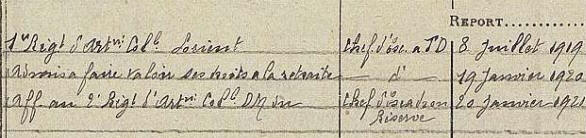 REPORT
1er Régt d'Artrie Colle Lorient Chef d'Esc. à TD 8 Juillet 1919
Admis à faire valoir ses droits à la retraite — d° — 19 Janvier 1920
Aff. au 2e Régt d'Artrie Colle Chef d'escadron Réserve 20 Janvier 1921